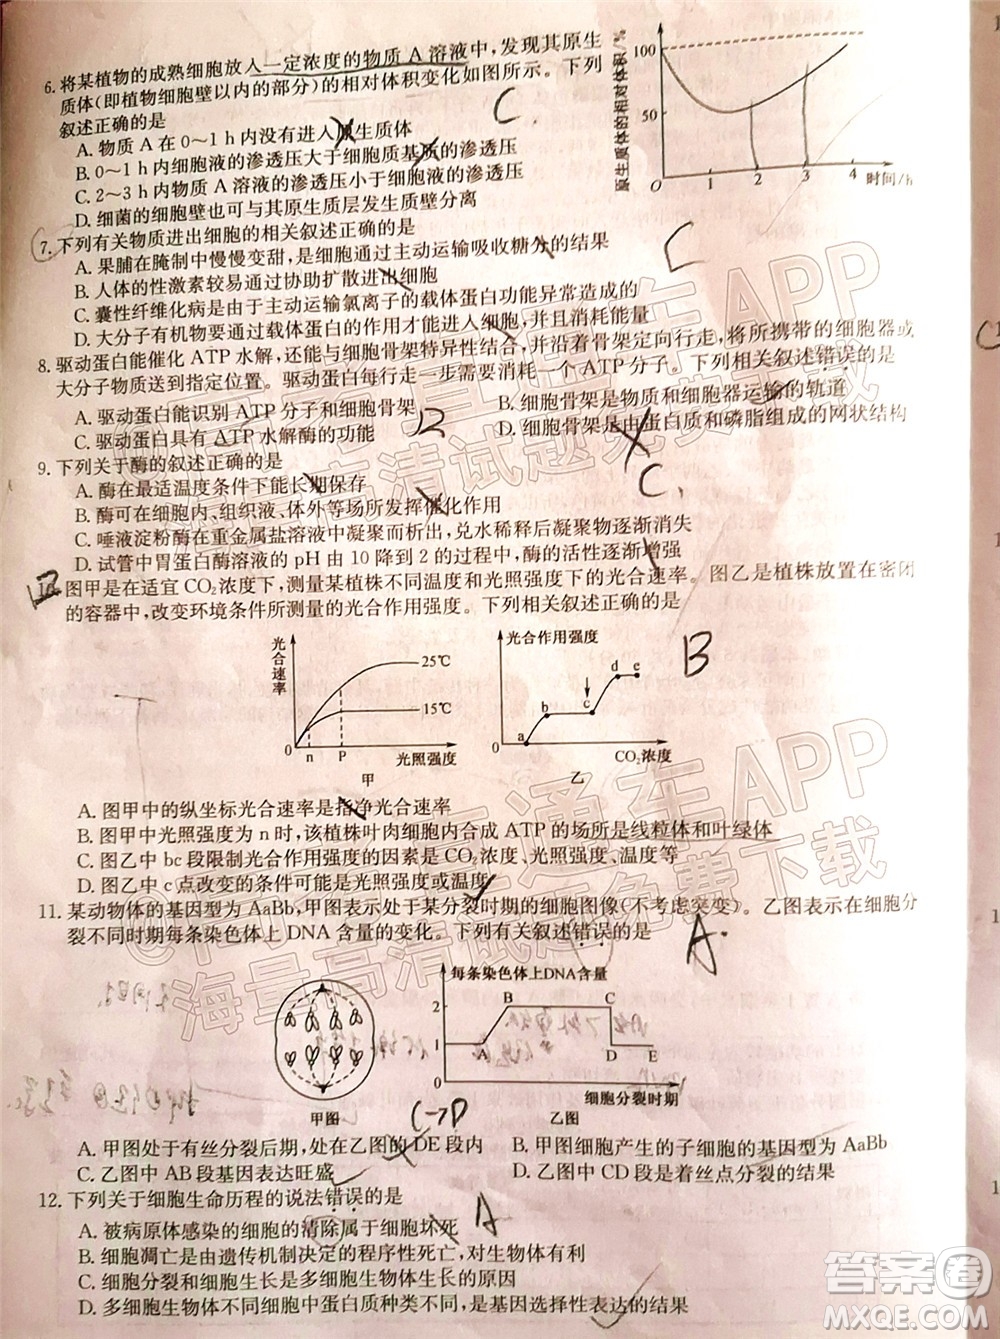 6. 将某植物的成熟细胞放入一定浓度的物质 A 溶液中，发现其原生
质体(即植物细胞壁以内的部分)的相对体积变化如图所示。下列
叙述正确的是
A. 物质 A 在 0～1 h 内没有进入原生质体
B. 0～1 h 内细胞液的渗透压大于细胞质基质的渗透压
C. 2～3 h 内物质 A 溶液的渗透压小于细胞液的渗透压
D. 细菌的细胞壁也可与其原生质层发生质壁分离
C.
原生质体的相对体积/%
100
50
0
1 2 3 4 时间/h
7. 下列有关物质进出细胞的叙述正确的是
A. 果脯在腌制中慢慢变甜，是细胞通过主动运输吸收糖分的结果
B. 人体的性激素较易通过协助扩散进出细胞
C. 囊性纤维化病是由于主动运输氯离子的载体蛋白功能异常造成的
D. 大分子有机物要通过载体蛋白的作用才能进入细胞，并且消耗能量
C
8. 驱动蛋白能催化 ATP 水解，还能与细胞骨架特异性结合，并沿着骨架定向行走，将所携带的细胞器或
大分子物质送到指定位置。驱动蛋白每行走一步需要消耗一个 ATP 分子。下列相关叙述错误的是
A. 驱动蛋白能识别 ATP 分子和细胞骨架 B. 细胞骨架是物质和细胞器运输的轨道
C. 驱动蛋白具有 ATP 水解酶的功能 D. 细胞骨架是由蛋白质和磷脂组成的网状结构
D
9. 下列关于酶的叙述正确的是
A. 酶在最适温度条件下能长期保存
B. 酶可在细胞内、组织液、体外等场所发挥催化作用
C. 唾液淀粉酶在重金属盐溶液中凝聚而析出，兑水稀释后凝聚物逐渐消失
D. 试管中胃蛋白酶溶液的 pH 由 10 降到 2 的过程中，酶的活性逐渐增强
C.
10. 图甲是在适宜 CO₂浓度下，测量某植株不同温度和光照强度下的光合速率。图乙是植株放置在密闭
的容器中，改变环境条件所测量的光合作用强度。下列相关叙述正确的是
光合速率
25℃
15℃
0 n P 光照强度
甲
光合作用强度
a b c d e
0 CO₂浓度
乙
B
A. 图甲中的纵坐标光合速率是指净光合速率
B. 图甲中光照强度为 n 时，该植株叶肉细胞内合成 ATP 的场所是线粒体和叶绿体
C. 图乙中 bc 段限制光合作用强度的因素是 CO₂浓度、光照强度、温度等
D. 图乙中 c 点改变的条件可能是光照强度或温度
11. 某动物体的基因型为 AaBb，甲图表示处于某分裂时期的细胞图像(不考虑突变)。乙图表示在细胞分
裂不同时期每条染色体上 DNA 含量的变化。下列有关叙述错误的是
A.
甲图
每条染色体上DNA含量
2
1
0
A B C D E
细胞分裂时期
乙图
C→D
A. 甲图处于有丝分裂后期，处在乙图的 DE 段内 B. 甲图细胞产生的子细胞的基因型为 AaBb
C. 乙图中 AB 段基因表达旺盛 D. 乙图中 CD 段是着丝点分裂的结果
12. 下列关于细胞生命历程的说法错误的是
A
A. 被病原体感染的细胞的清除属于细胞坏死
B. 细胞凋亡是由遗传机制决定的程序性死亡，对生物体有利
C. 细胞分裂和细胞生长是多细胞生物体生长的细胞学基础
D. 多细胞生物体不同细胞中蛋白质种类不完全相同，是基因选择性表达的结果
答案圈
MXQE.COM